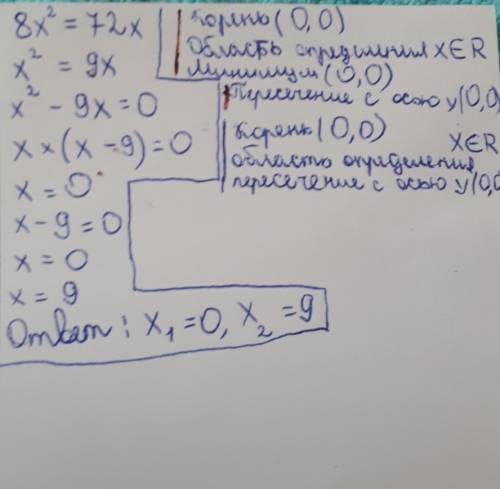 8x² = 72x
x² = 9x
x² - 9x = 0
x × (x - 9) = 0
x = 0
x - 9 = 0
x = 0
x = 9
Ответ: x₁ = 0, x₂ = 9
Корень (0,0)
Область определения x∈R
Минимум (0,0)
Пересечение с осью y (0,0
Корень (0,0)
x∈R
область определения,
пересечение с осью y (0,0